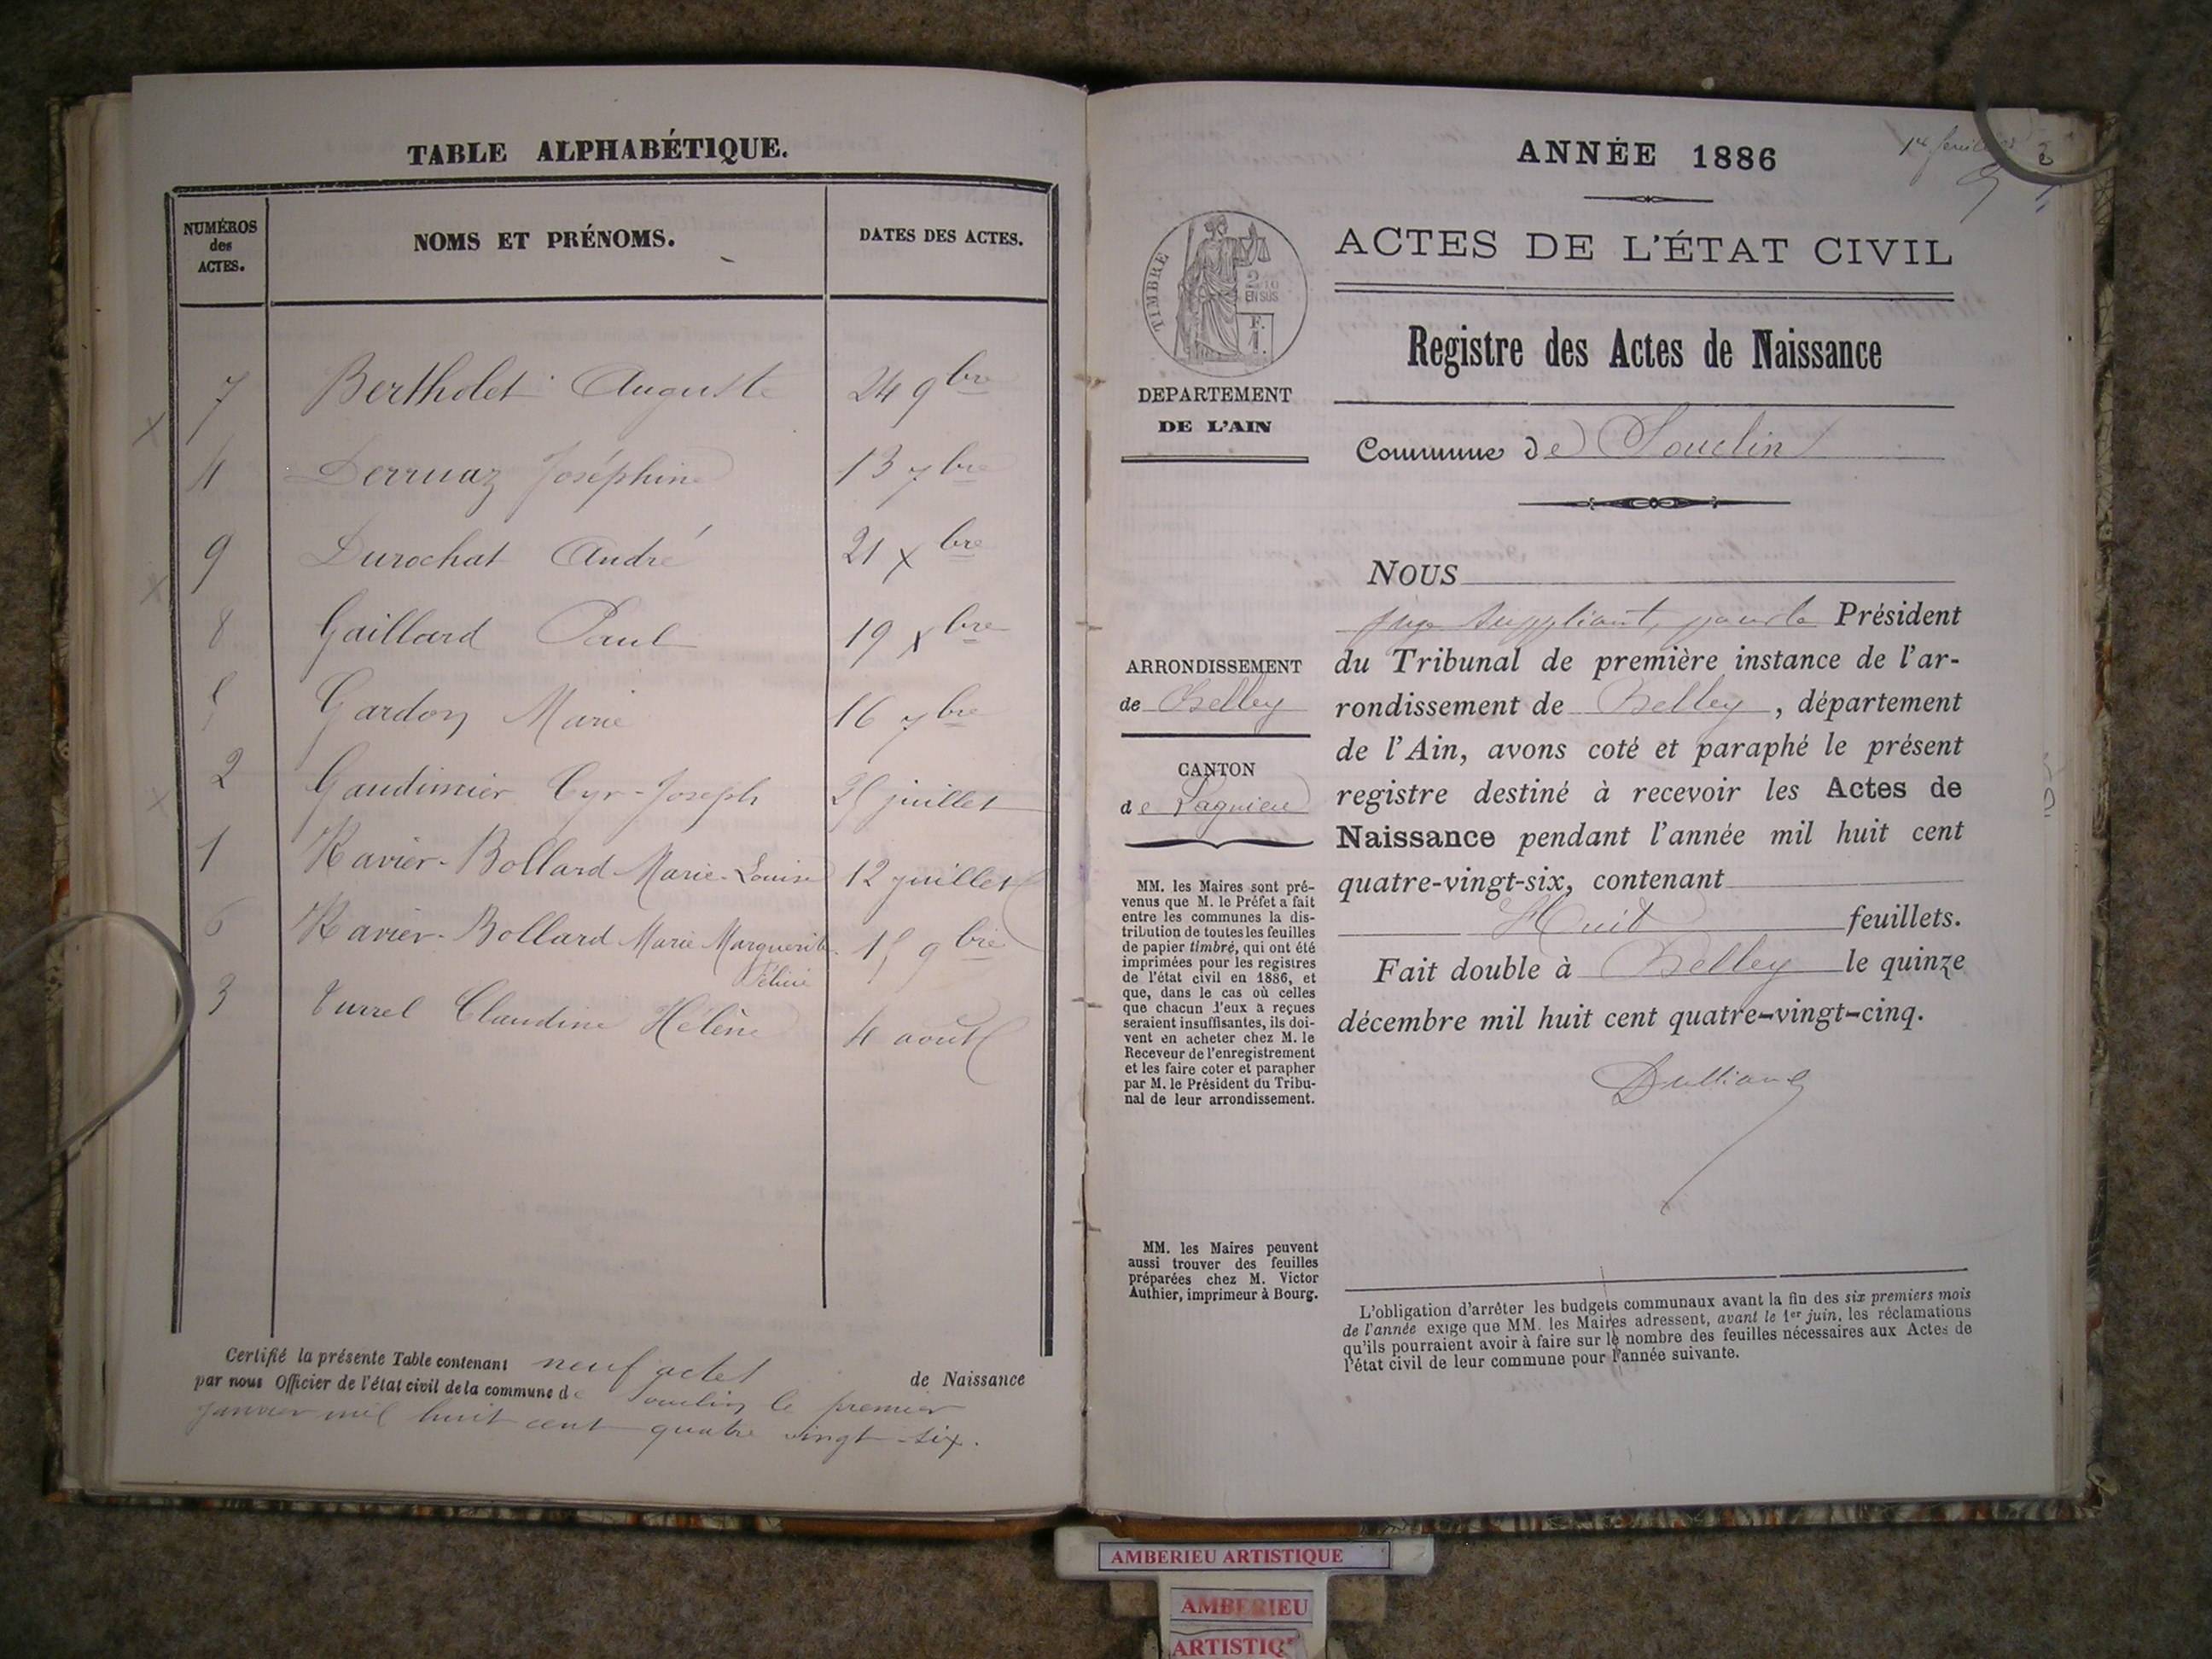 TABLE ALPHABÉTIQUE.
NUMÉROS des ACTES. NOMS ET PRÉNOMS. DATES DES ACTES.
7 Bertholet Auguste 24 9bre
4 Derruaz Joséphine 13 7bre
9 Durochat André 21 Xbre
8 Gaillard Paul 19 Xbre
5 Gardon Marie 16 7bre
2 Gaudimier Cyr-Joseph 25 juillet
1 Ravier-Bollard Marie-Louise 12 juillet
6 Ravier-Bollard Marie Marguerite 15 9bre
3 Turrel Claudine Hélène 4 août
Certifié la présente Table contenant neuf actes de Naissance
par nous Officier de l'état civil de la commune de Souclin le premier
janvier mil huit cent quatre vingt-six.
ANNÉE 1886
ACTES DE L'ÉTAT CIVIL
TIMBRE
2/10
EN SUS
F.
1.
Registre des Actes de Naissance
DEPARTEMENT
DE L'AIN
Commune de Souclin
NOUS
juge suppléant, pour le Président
du Tribunal de première instance de l'ar-
rondissement de Belley, département
de l'Ain, avons coté et paraphé le présent
registre destiné à recevoir les Actes de
Naissance pendant l'année mil huit cent
quatre-vingt-six, contenant
Huit feuillets.
Fait double à Belley le quinze
décembre mil huit cent quatre-vingt-cinq.
ARRONDISSEMENT
de Belley
CANTON
de Lagnieu
MM. les Maires sont pré-
venus que M. le Préfet a fait
entre les communes la dis-
tribution de toutes les feuilles
de papier timbré, qui ont été
imprimées pour les registres
de l'état civil en 1886, et
que, dans le cas où celles
que chacun d'eux a reçues
seraient insuffisantes, ils doi-
vent en acheter chez M. le
Receveur de l'enregistrement
et les faire coter et parapher
par M. le Président du Tribu-
nal de leur arrondissement.
MM. les Maires peuvent
aussi trouver des feuilles
préparées chez M. Victor
Authier, imprimeur à Bourg.
L'obligation d'arrêter les budgets communaux avant la fin des six premiers mois
de l'année exige que MM. les Maires adressent, avant le 1er juin, les réclamations
qu'ils pourraient avoir à faire sur le nombre des feuilles nécessaires aux Actes de
l'état civil de leur commune pour l'année suivante.
AMBERIEU ARTISTIQUE
AMBERIEU
ARTISTIQ